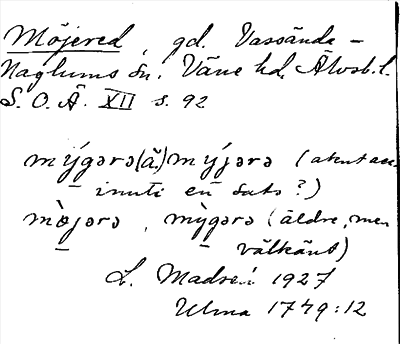 Möjered, gd. Vassända-
Naglums sn. Väne hd. Älvsb. l.
S. O. Ä. XII s. 92
mýgərə (ä.) mýjərə (akut acc.
inuti en sats?)
mø̀jərə, mỳgərə (äldre, men
välkänt)
L. Madsén 1927
Ulma 1779:12